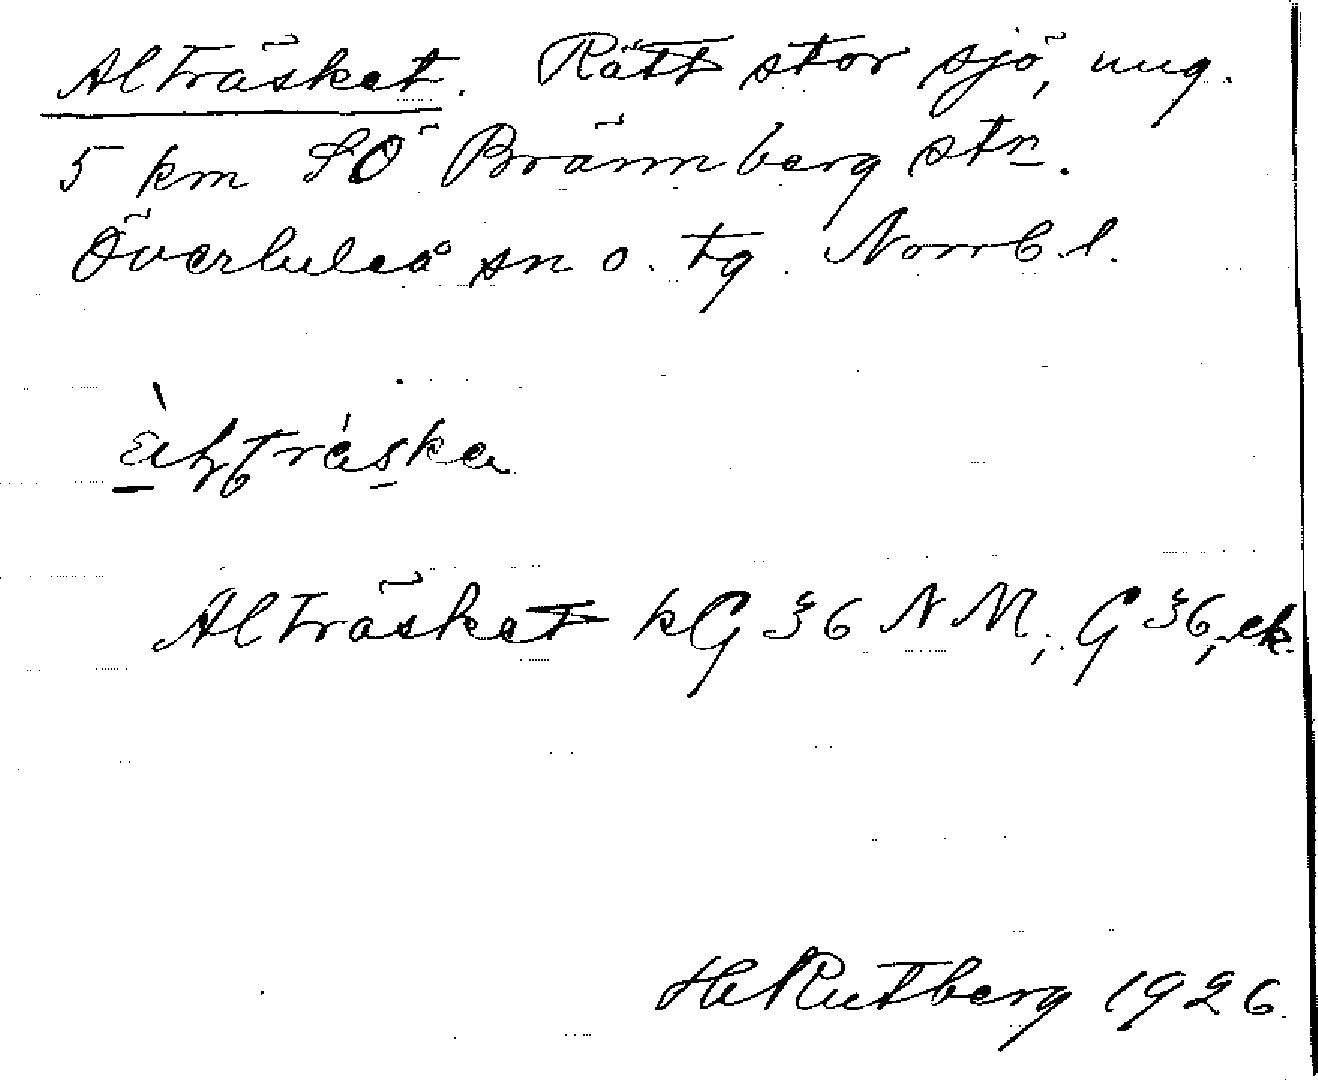 Alträsket. Rätt stor sjö, ung.
5 km SÖ Brännberg stn.
Överluleå sn o. tg. Norrb. l.
Alträsket kG 36 NM; G 36, ek.
H Rutberg 1926.